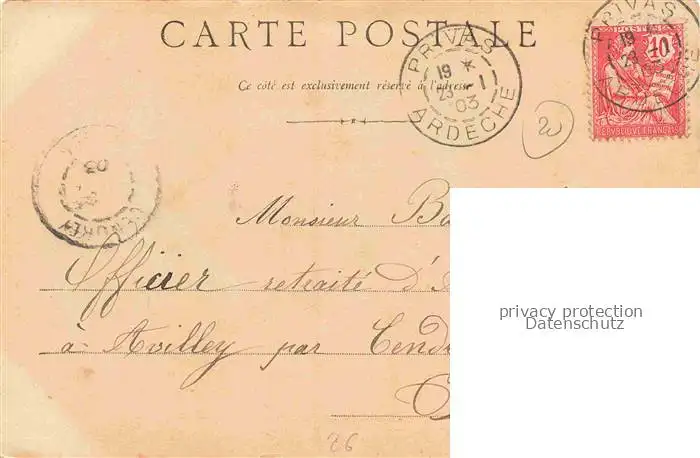 CARTE POSTALE
Ce côté est exclusivement réservé à l'adresse
PRIVAS
19 *
23 - 1
03
ARDECHE
PRIVAS
19
23
10
REPUBLIQUE FRANÇAISE
2
03
CENDREY
Monsieur Ba
Officier retraité d'A
à Avilley par Cend
privacy protection
Datenschutz
26